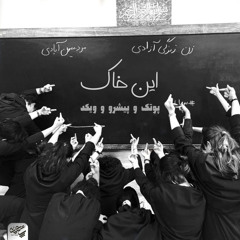 زن زندگی آزادی
مرد میهن آبادی
این خاک
پوتک و پیشرو و ویگد